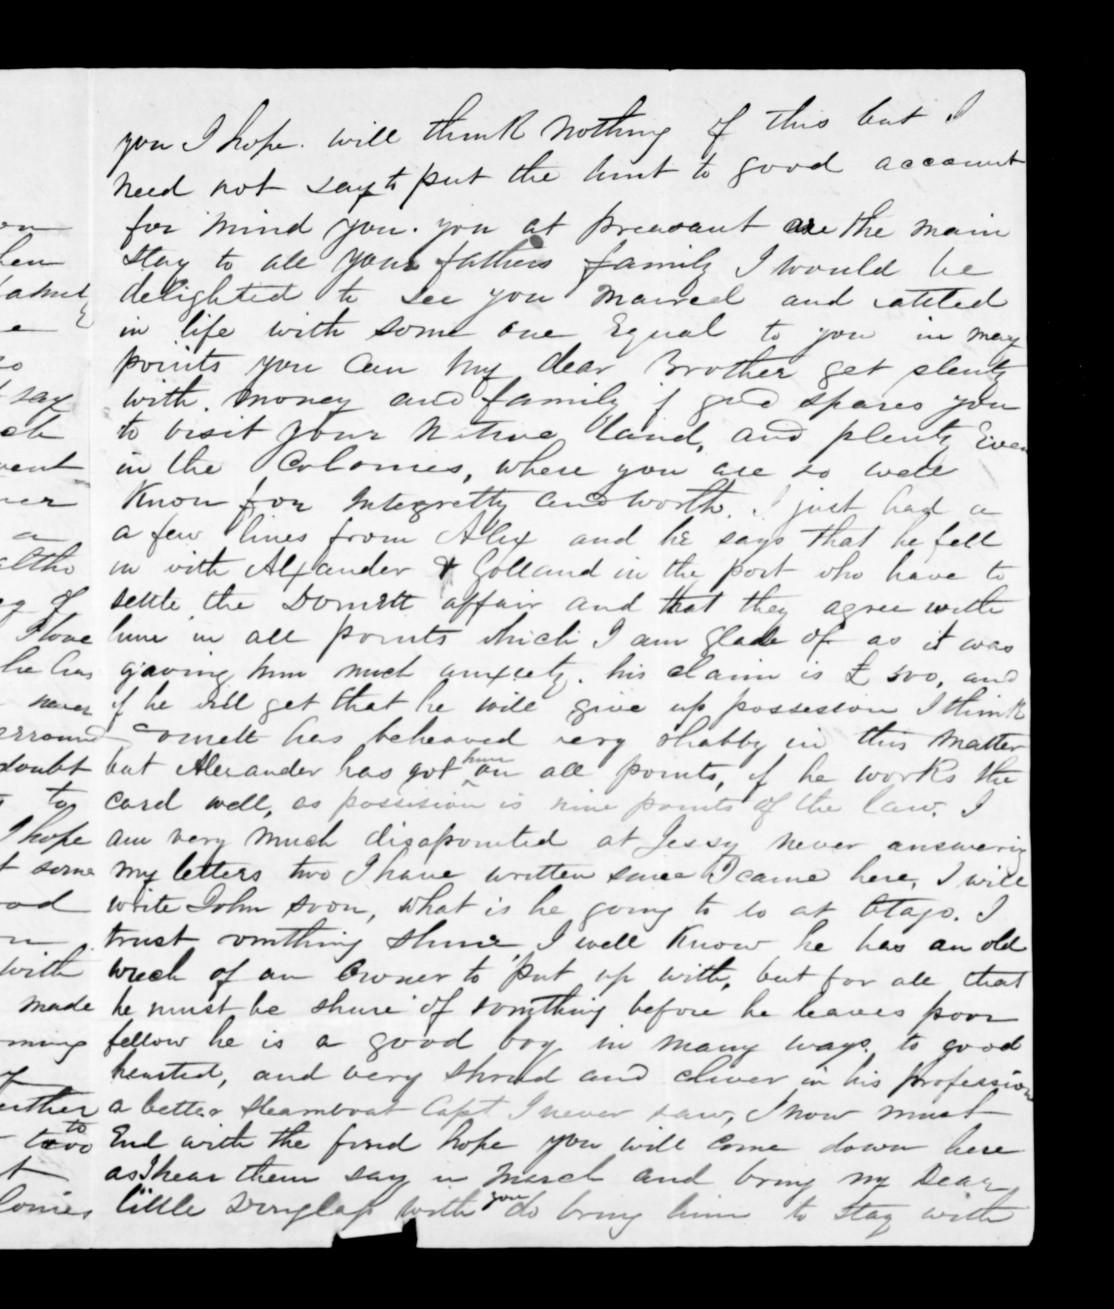 you I hope. will think nothing of this but I
need not say to put the hint to good account
for mind you. you at preasant are the main
stay to all your fathers family I would be
delighted to see you maired and settled
in life with some one Equal to you in may
points you can my dear Brother get plenty
with money and family if god spares you
to visit your Native land, and plenty Even
in the Colonies, where you are so well
Know for Integretty and worth. I just had a
a few lines from Alex and he says that he fell
in with Alxander & Golland in the port who have to
settle the Domett affair and that they agree with
him in all points which I am glade of as it was
gaving him much anxiety. his claim is £500, and
if he will get that he will give up possesion I think
Domett has behaved very shabby in this matter
but Alexander has got him on all points, if he works the
card well, as possision is nine points of the law. I
am very much disapointed at Jessy never answering
my letters two I have written since I came here, I will
write John soon, what is he going to do at Otago. I
trust somthing shure I well Know he has an old
wrech of an Owner to put up with, but for all that
he must be shure of somthing before he leaves poor
fellow he is a good boy in many ways. to good
hearted, and very shrud and cliver in his profession
a better Steamboat Capt I never saw, I now must
End with the fond hope you will come down here
as I hear them say in March and bring my Dear
little Douglas with you do bring him to stay with
on
hen
e &
so
say
ch
vent
ner
a
altho
eg of
I love
he has
never
doubt
to
I hope
t some
od
n
with
made
ming
either
to
t